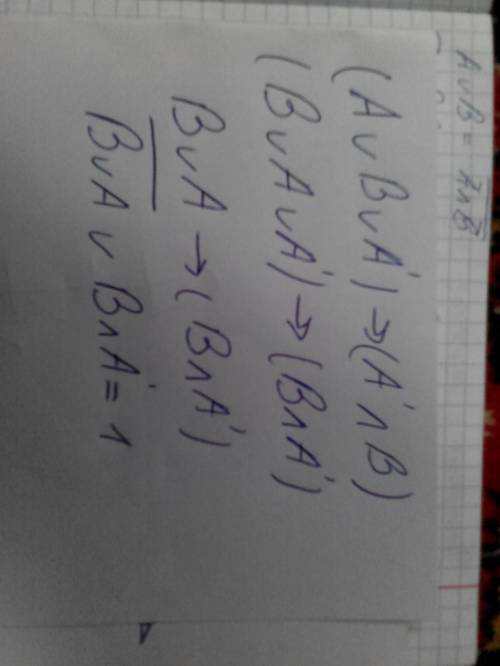 A∪B = A∩B
(A∪B∪A') → (A'∩B)
(B∪A∪A') → (B∩A')
B∪A → (B∩A')
B∪A ∪ B∩A' = 1